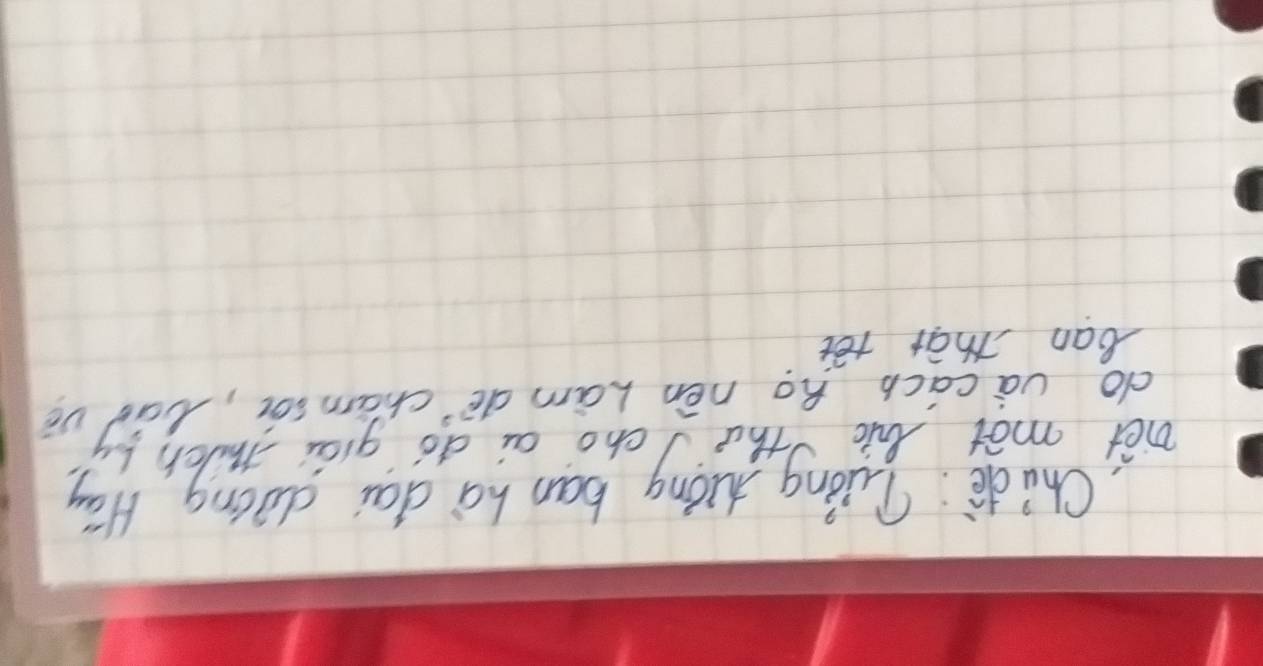 Chủ đề: Tưởng tượng bạn là đại dương Hãy
viết một bức thư cho ai đó giải thích lý
do và cách họ nên làm để chăm sóc, bảo vệ
bạn thật tốt